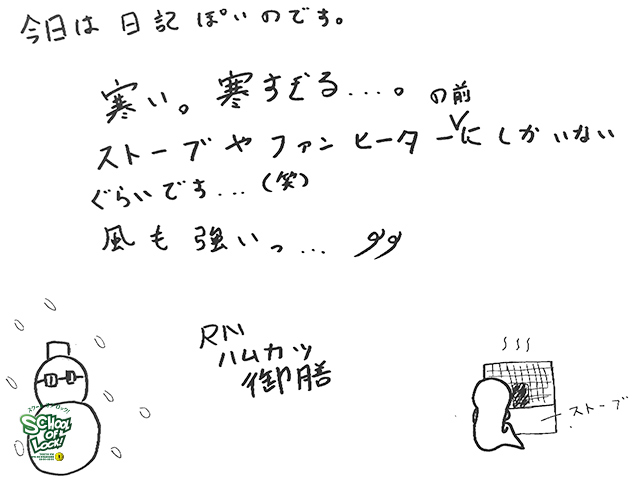 今日は日記ぽいのです。
寒い。寒すぎる…。
ストーブやファンヒーターの前にしかいない
ぐらいです…(笑)
風も強いっ…
RN
ハムカツ
御膳
ストーブ
SCHOOL
OF
LOCK!